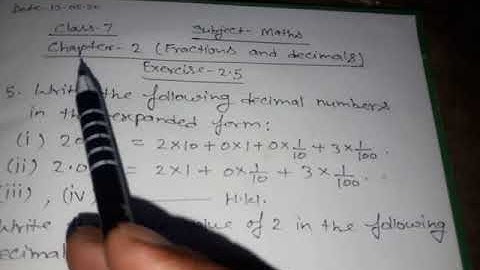 Class-7 Subject- Maths
Chapter-2 (Fractions and decimals)
Exercise-2.5
5. Write the following decimal numbers
in the expanded form:
(i) = 2×10 + 0×1 + 0×1/10 + 3×1/100.
(ii) = 2×1 + 0×1/10 + 3×1/100.
(iii), (iv) H.W.
Write of 2 in the following